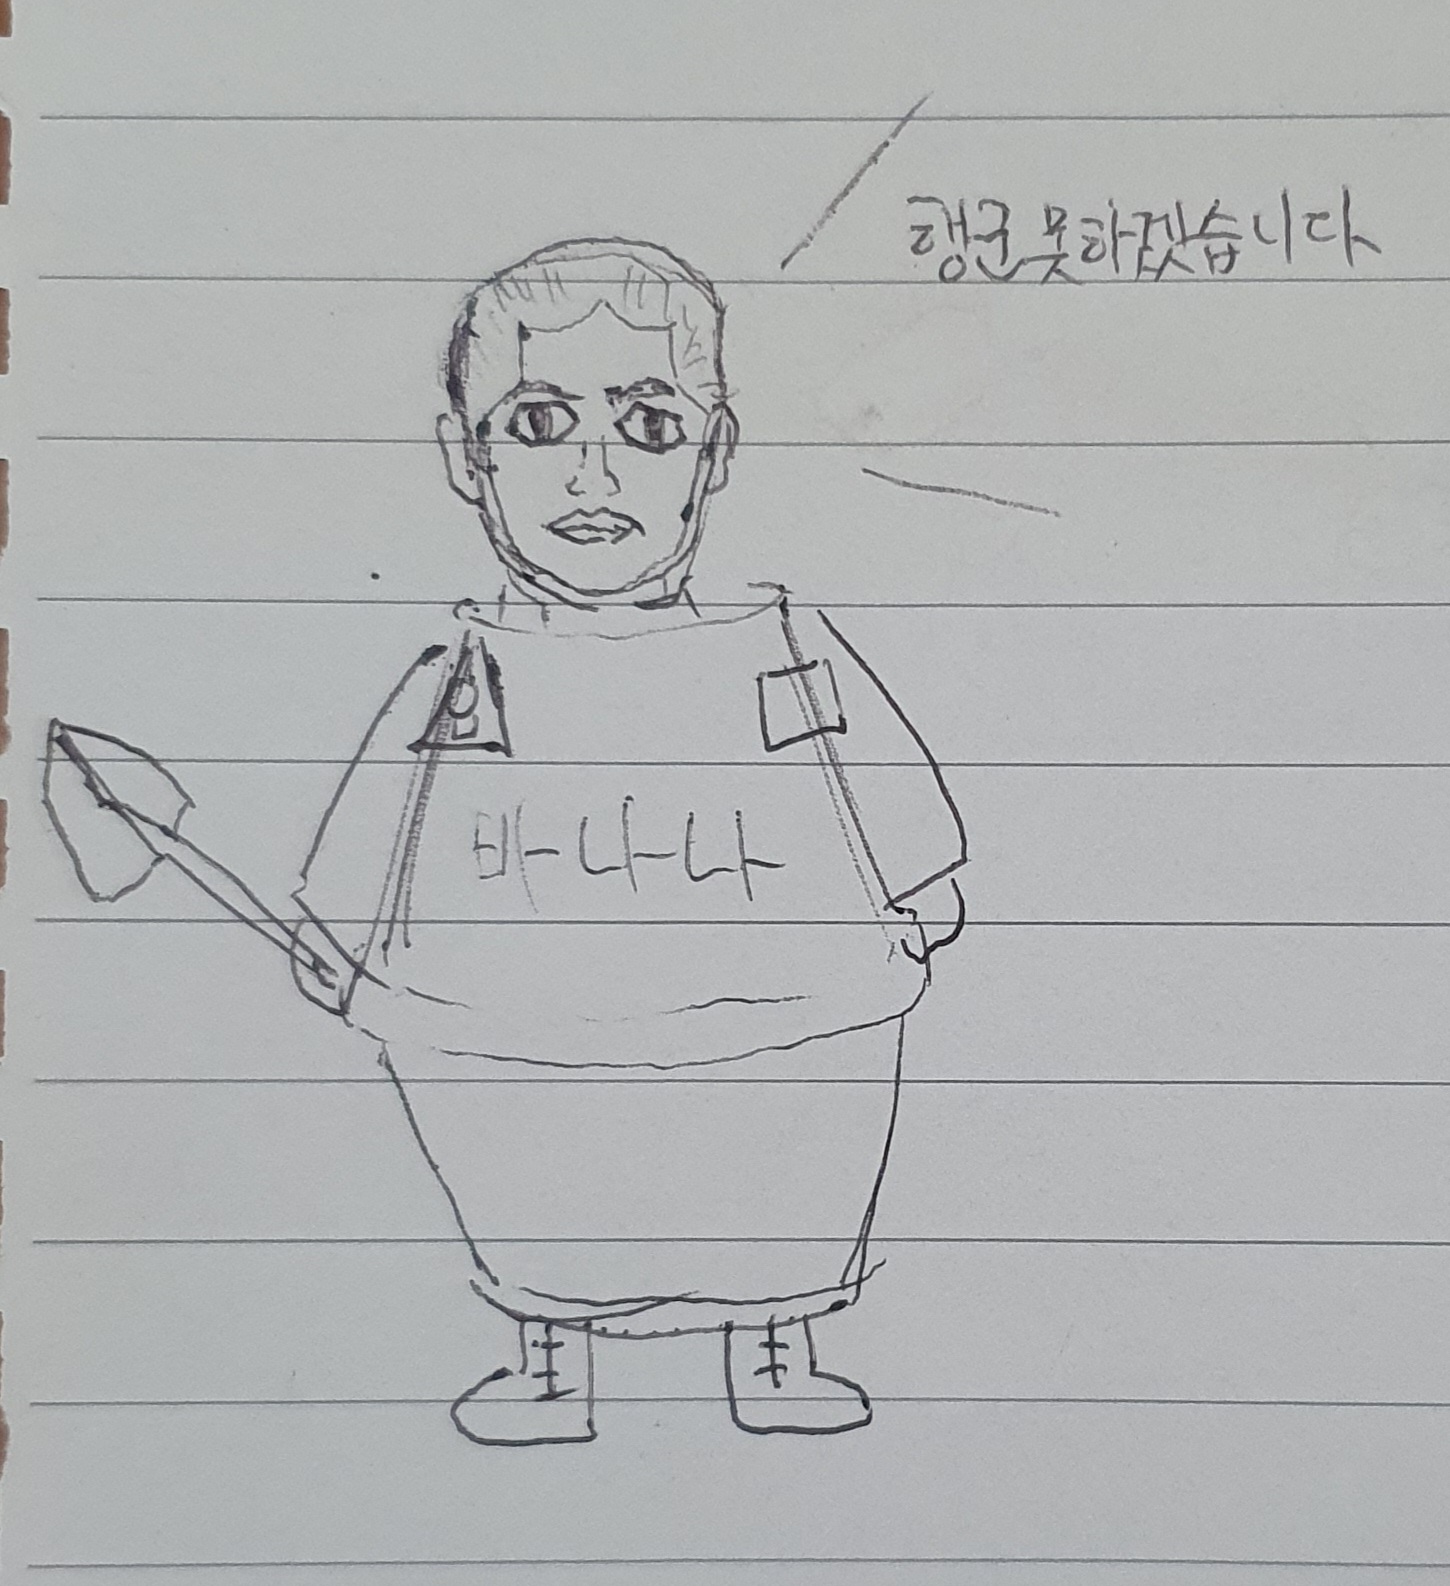 행군못하겠습니다
바나나